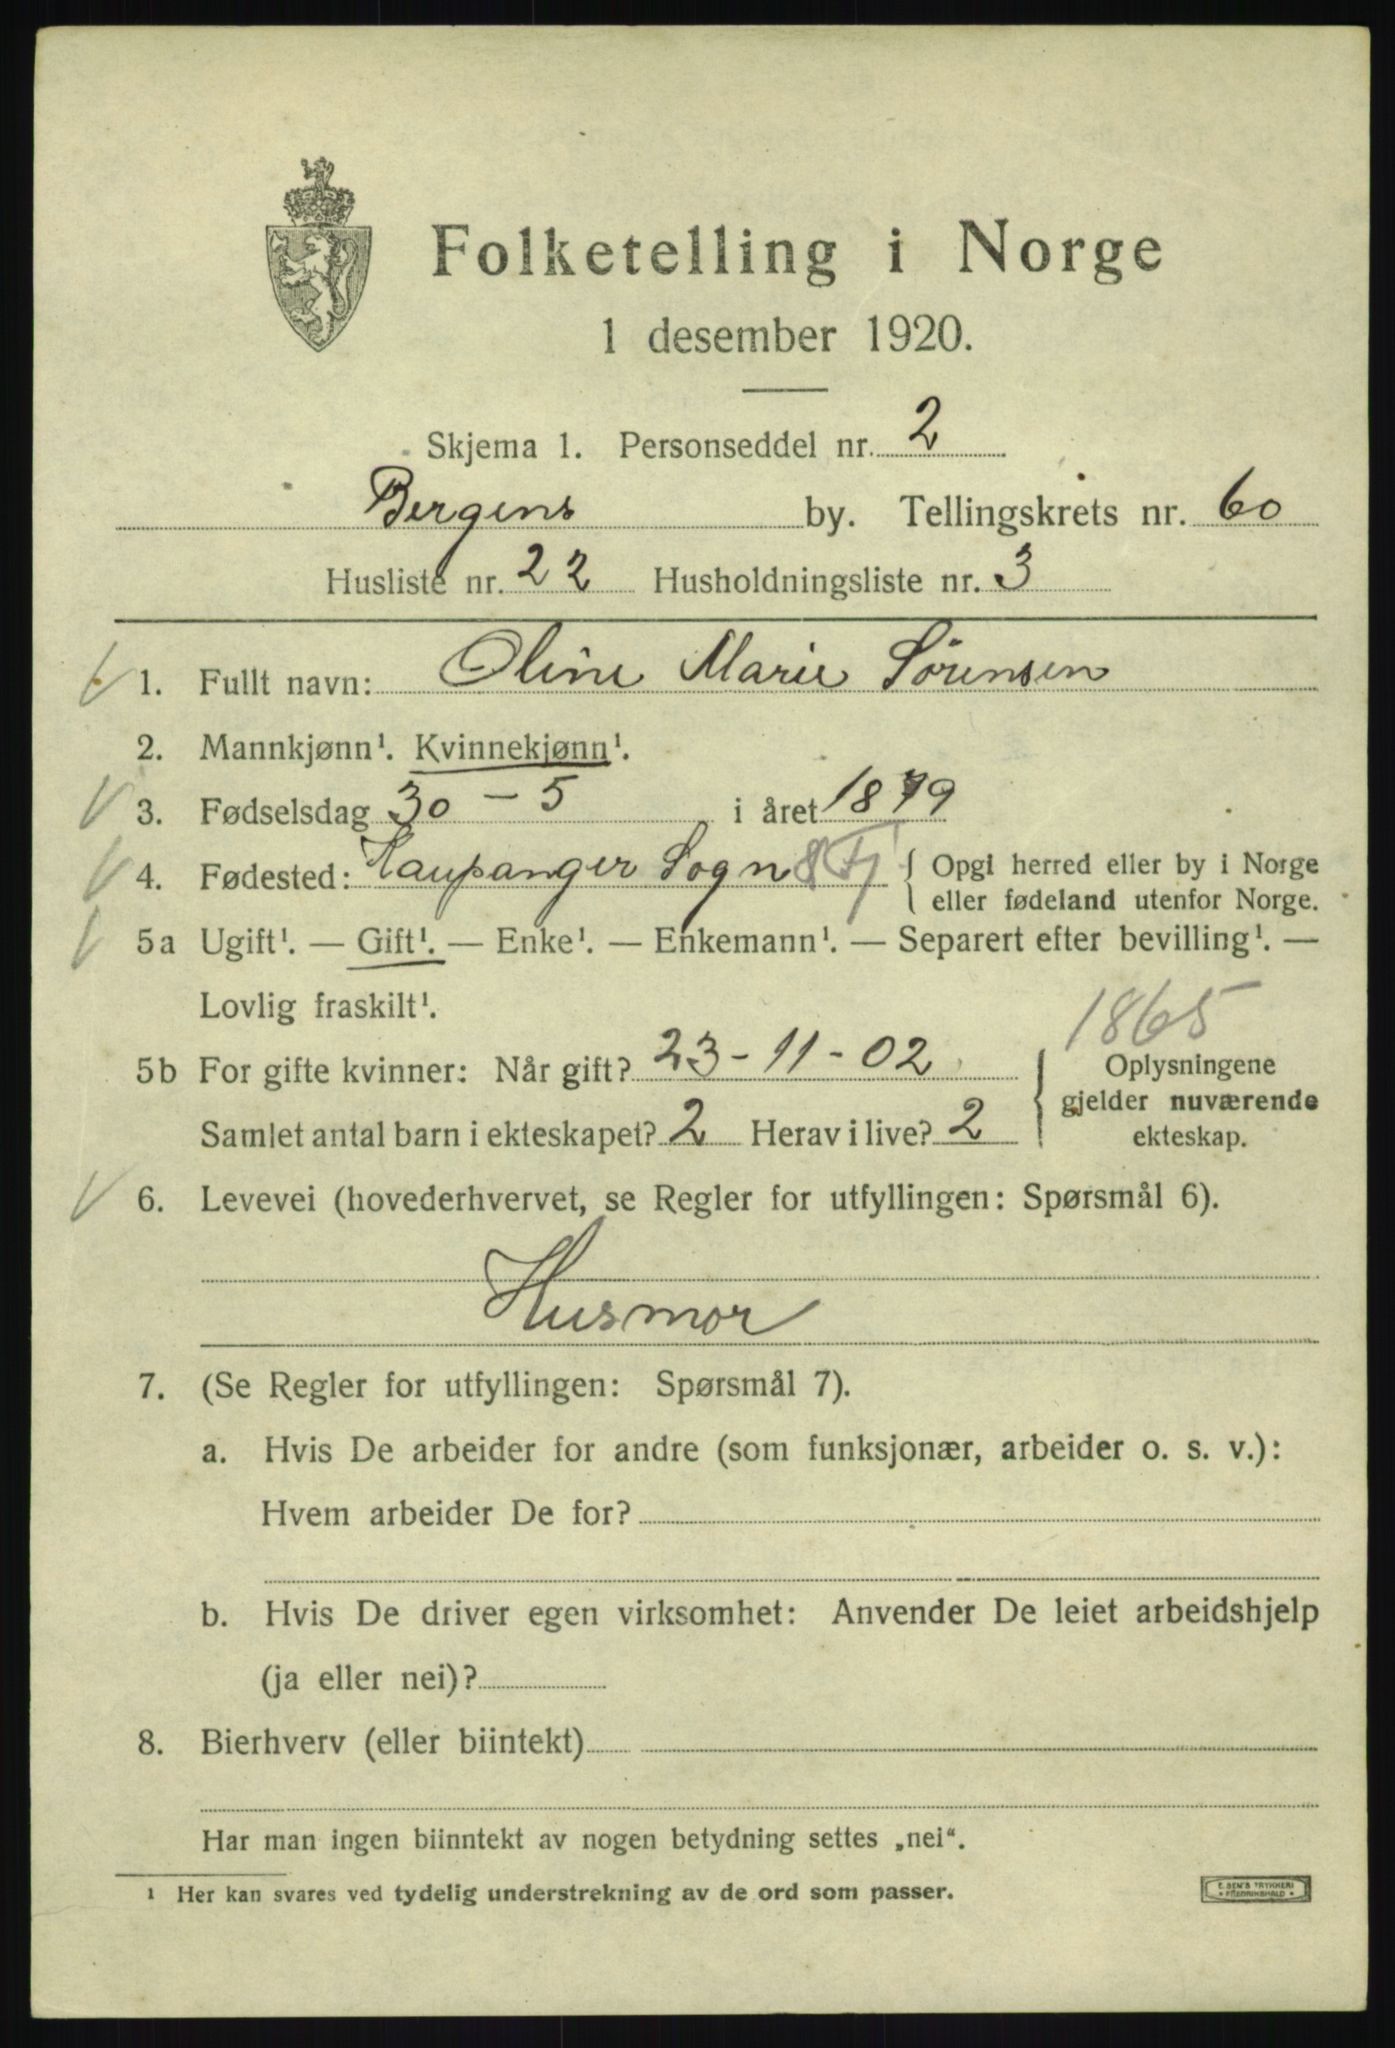 Folketelling i Norge
1 desember 1920.
Skjema 1. Personseddel nr. 2
Bergens by. Tellingskrets nr. 60
Husliste nr. 22 Husholdningsliste nr. 3
1. Fullt navn: Oline Marie Sørensen
2. Mannkjønn¹. Kvinnekjønn¹.
3. Fødselsdag 30 - 5 i året 1879
4. Fødested: Kaupanger Sogn { Opgi herred eller by i Norge
eller fødeland utenfor Norge.
5a Ugift¹. — Gift¹. — Enke¹. — Enkemann¹. — Separert efter bevilling¹. —
Lovlig fraskilt¹.
1865
5b For gifte kvinner: Når gift? 23-11-02
Samlet antal barn i ekteskapet? 2 Herav i live? 2
{ Oplysningene
gjelder nuværende
ekteskap.
6. Levevei (hovederhvervet, se Regler for utfyllingen: Spørsmål 6).
Husmor
7. (Se Regler for utfyllingen: Spørsmål 7).
a. Hvis De arbeider for andre (som funksjonær, arbeider o. s. v.):
Hvem arbeider De for?
b. Hvis De driver egen virksomhet: Anvender De leiet arbeidshjelp
(ja eller nei)?
8. Bierhverv (eller biintekt)
Har man ingen biinntekt av nogen betydning settes „nei“.
¹ Her kan svares ved tydelig understrekning av de ord som passer.
TRYKKERI
FREDRIKSHALD